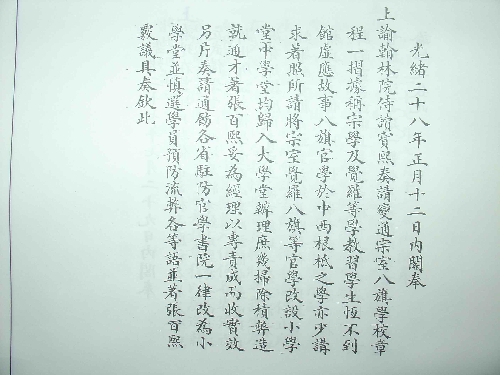 光緒二十八年正月十二日內閣奉
上諭翰林院侍讀寶熙奏請變通宗室八旗學校章
程一摺據稱宗學及覺羅等學教習學生恆不到
館虛應故事八旗官學於中西根柢之學亦少講
求著照所請將宗室覺羅八旗等官學改設小學
堂中學堂均歸入大學堂辦理庶幾掃除積弊造
就通才著張百熙妥為經理以專責成而收實效
另片奏請通飭各省駐防官學書院一律改為小
學堂並慎選學員預防流弊各等語並著張百熙
覈議具奏欽此